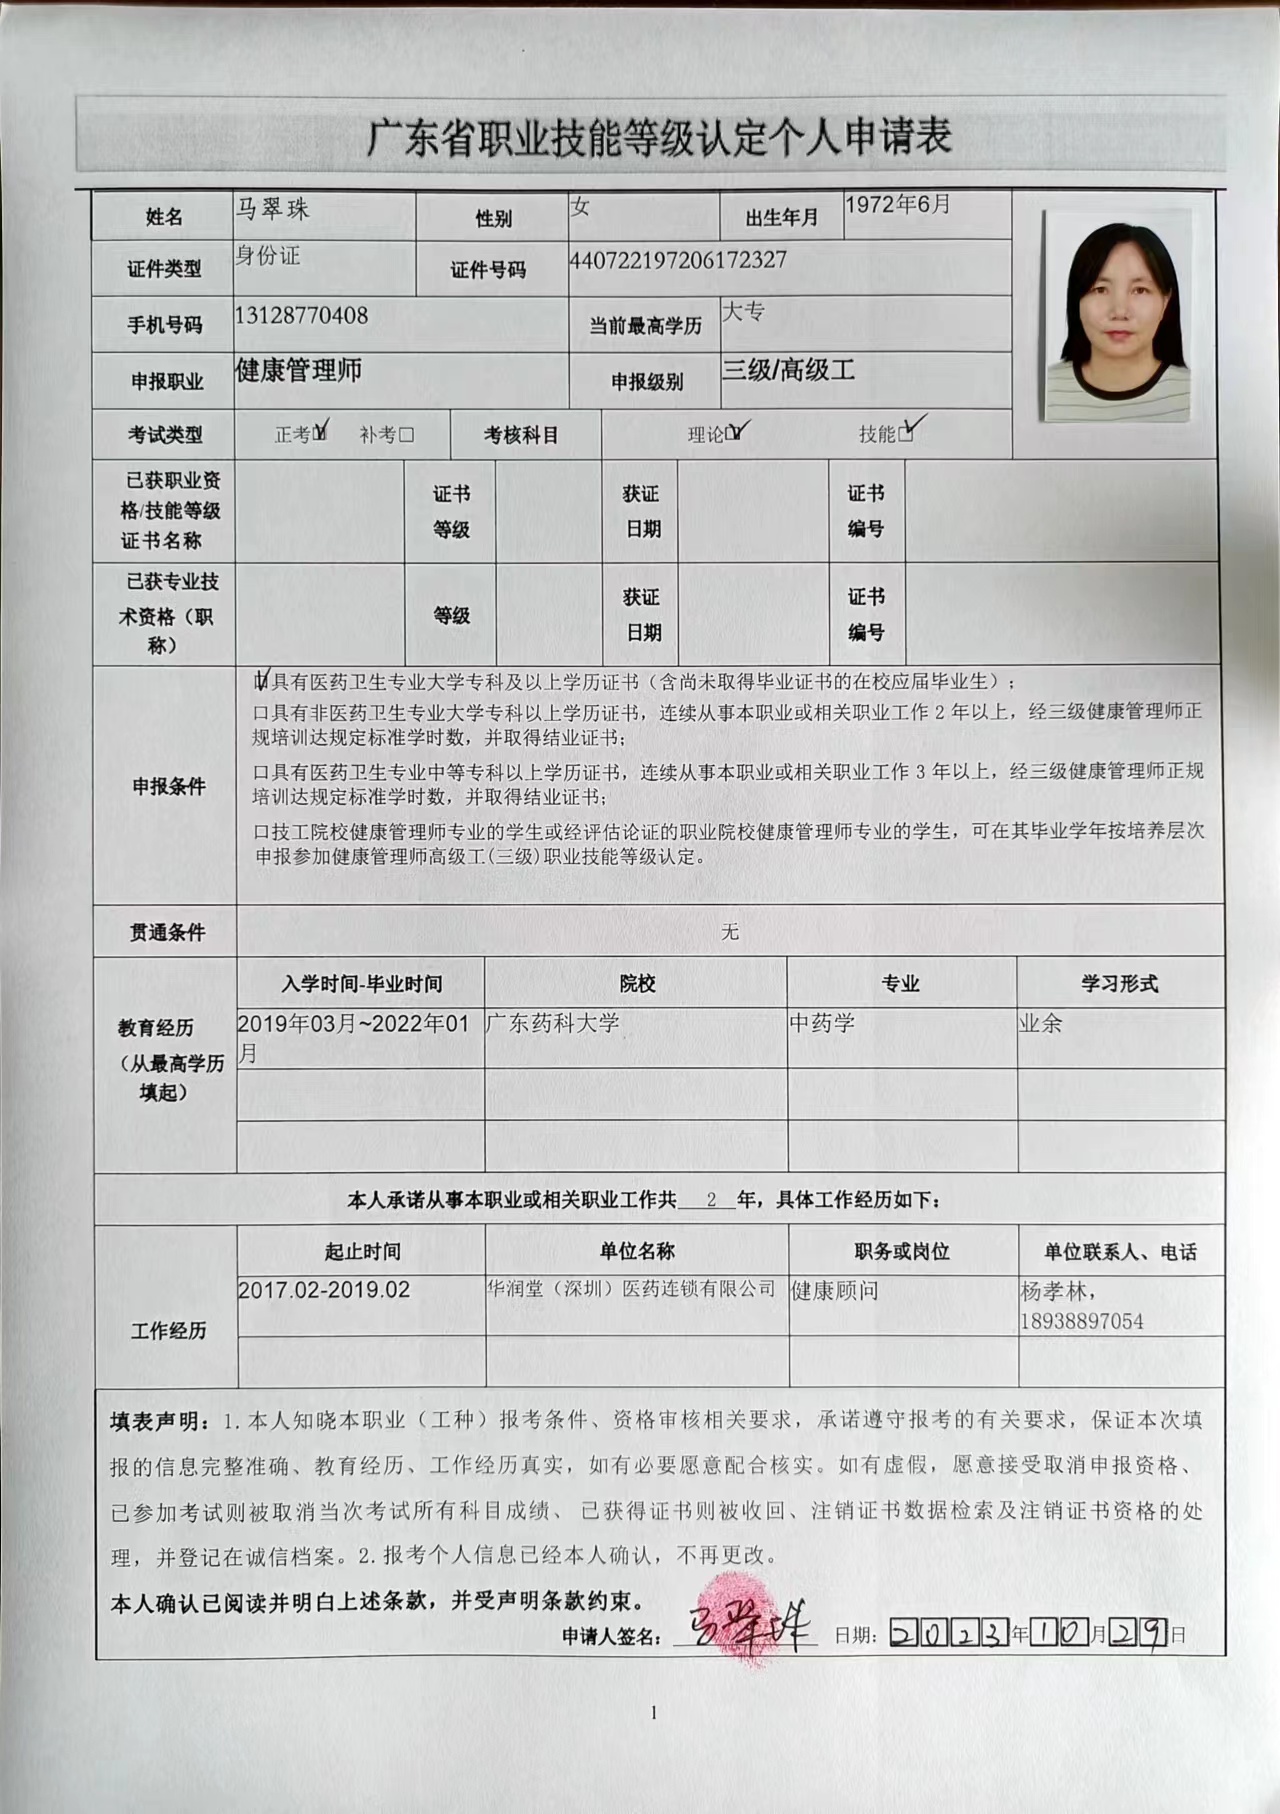 广东省职业技能等级认定个人申请表
姓名 马翠珠 性别 女 出生年月 1972年6月
证件类型 身份证 证件号码 440722197206172327
手机号码 13128770408 当前最高学历 大专
申报职业 健康管理师 申报级别 三级/高级工
考试类型 正考☑ 补考□ 考核科目 理论☑ 技能☑
已获职业资格/技能等级证书名称 证书等级 获证日期 证书编号
已获专业技术资格（职称） 等级 获证日期 证书编号
申报条件
☑具有医药卫生专业大学专科及以上学历证书（含尚未取得毕业证书的在校应届毕业生）；
口具有非医药卫生专业大学专科以上学历证书，连续从事本职业或相关职业工作 2 年以上，经三级健康管理师正
规培训达规定标准学时数，并取得结业证书；
口具有医药卫生专业中等专科以上学历证书，连续从事本职业或相关职业工作 3 年以上，经三级健康管理师正规
培训达规定标准学时数，并取得结业证书；
口技工院校健康管理师专业的学生或经评估论证的职业院校健康管理师专业的学生，可在其毕业学年按培养层次
申报参加健康管理师高级工(三级)职业技能等级认定。
贯通条件 无
教育经历（从最高学历填起）
入学时间-毕业时间 院校 专业 学习形式
2019年03月~2022年01月 广东药科大学 中药学 业余
本人承诺从事本职业或相关职业工作共 2 年，具体工作经历如下：
工作经历
起止时间 单位名称 职务或岗位 单位联系人、电话
2017.02-2019.02 华润堂（深圳）医药连锁有限公司 健康顾问 杨孝林，
18938897054
填表声明：1.本人知晓本职业（工种）报考条件、资格审核相关要求，承诺遵守报考的有关要求，保证本次填
报的信息完整准确、教育经历、工作经历真实，如有必要愿意配合核实。如有虚假，愿意接受取消申报资格、
已参加考试则被取消当次考试所有科目成绩、 已获得证书则被收回、注销证书数据检索及注销证书资格的处
理，并登记在诚信档案。2.报考个人信息已经本人确认，不再更改。
本人确认已阅读并明白上述条款，并受声明条款约束。
申请人签名： 马翠珠 日期：2023年10月29日
1